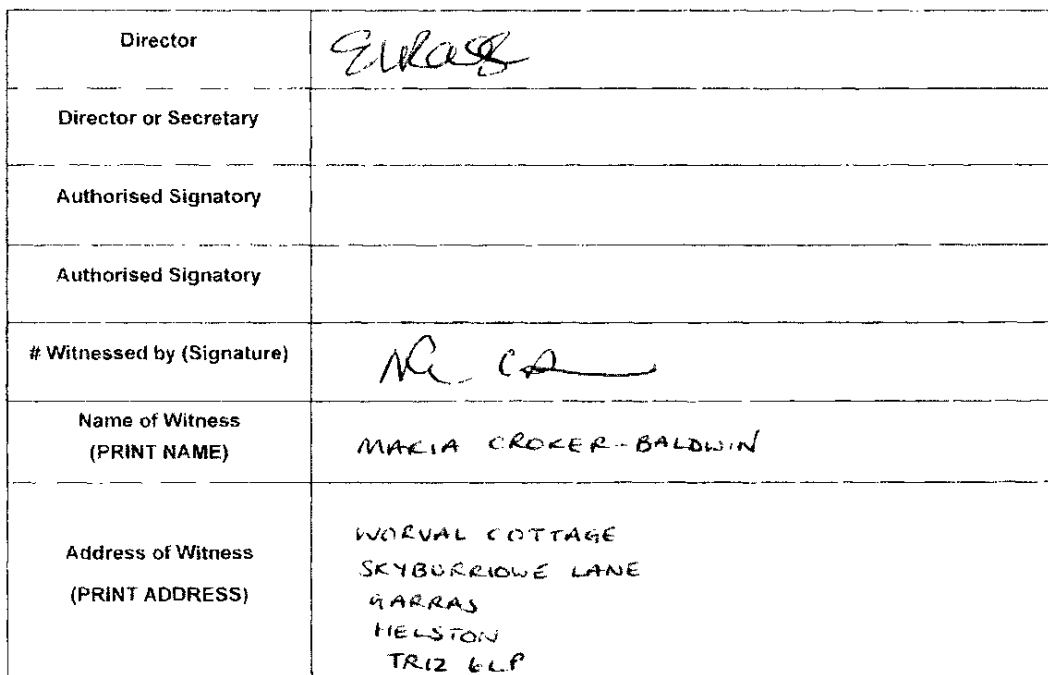 Director
Director or Secretary
Authorised Signatory
Authorised Signatory
# Witnessed by (Signature)
Name of Witness
(PRINT NAME)
MARIA CROKER-BALDWIN
Address of Witness
(PRINT ADDRESS)
WORVAL COTTAGE
SKYBURRIOWE LANE
GARRAS
HELSTON
TR12 6LP